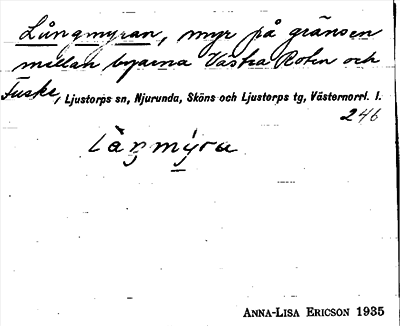 Långmyran, myr på gränsen
mellan byarna Västra Roten och
Fuske, Ljustorps sn, Njurunda, Sköns och Ljustorps tg, Västernorrl. l.
246
ANNA-LISA ERICSON 1935